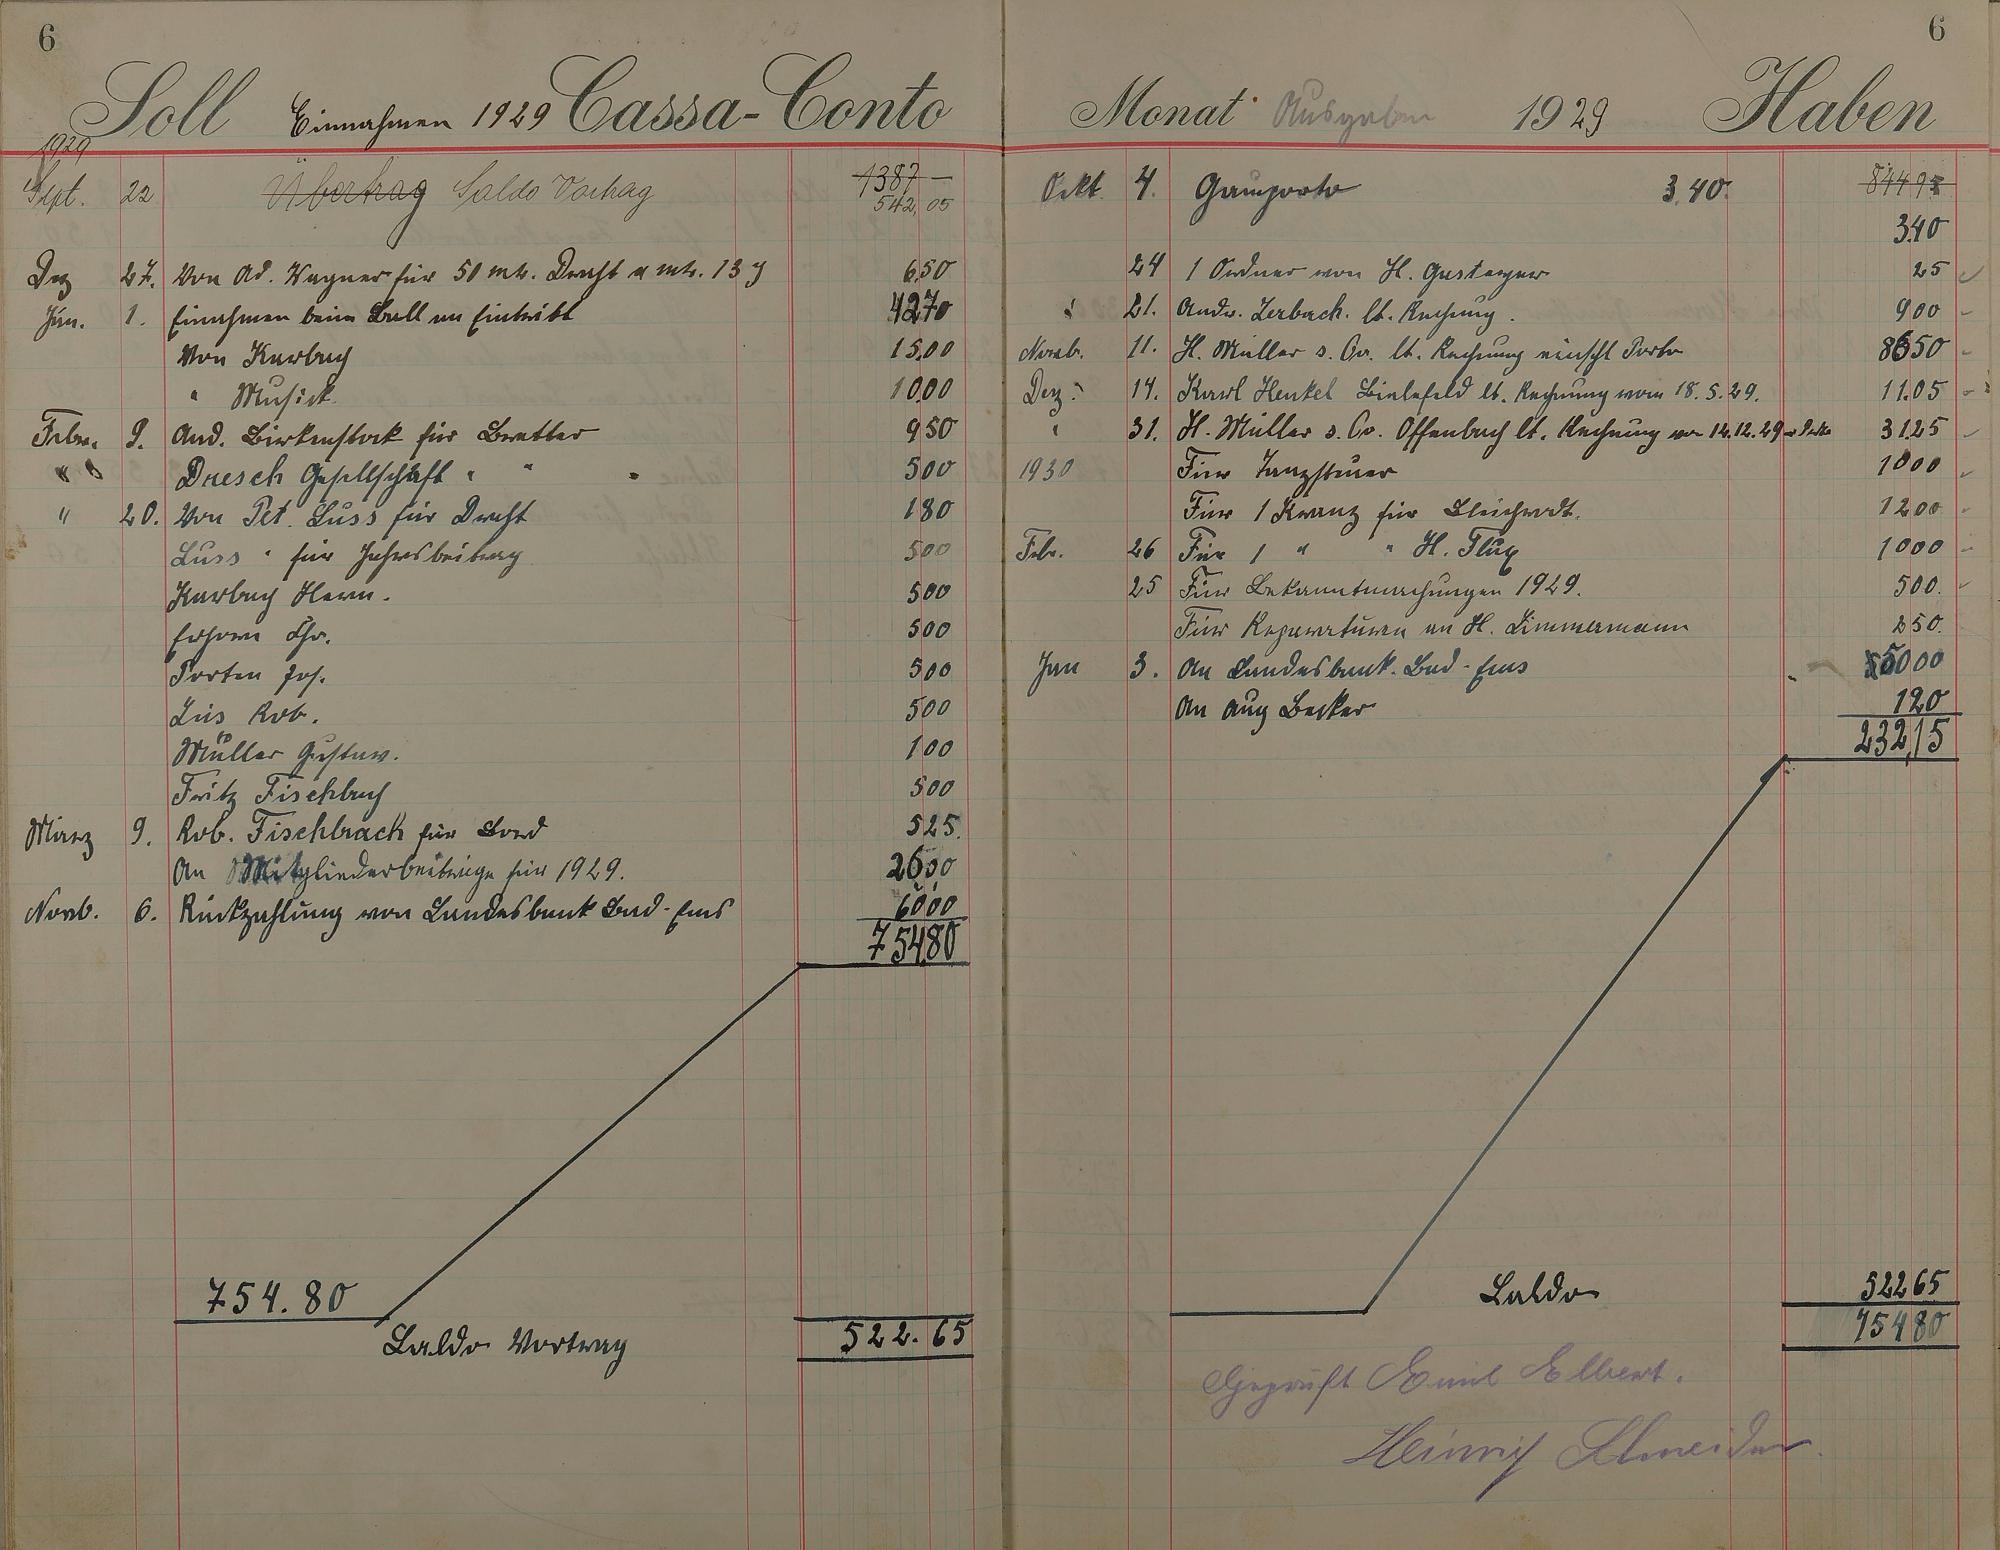 6
Soll Einnahmen 1929 Cassa-Conto
1929
Sept. 22 Übertrag Saldo Vortrag 1387 — 542,05
Dez 27. Von Ad. Wagner für 50 mtr. Draht a mtr. 13 6,50
Jan. 1. Einnahmen beim Ball an Eintritt 4270
Von Karbach 15,00
" Musick 1000
Febr. 9. And. Birkenstock für Bretter 950
" " Dresch Gesellschaft " " " 500
" 20. Von Pet. Luss für Draht 180
Luss " für Jahresbeitrag 500
Karbach Herm. 500
Chr. 500
Porten Jos. 500
Rob. 500
Müller Gustav. 100
Fritz Fischbach 500
März 9. Rob. Fischbach für Bord 525.
An Mitgliederbeiträge für 1929. 2600
Novb. 6. Rückzahlung von Landesbank Bad-Ems 6000
75480
754.80
Saldo Vortrag 522.65
6
Monat Ausgaben 1929 Haben
Okt. 4. Gauporto 3,40. 84495
340
24 1 Ordner von H. 25
" 21. Andr. Zerbach. lt. Rechnung. 900
Novb. 11. H. Müller s. Co. lt. Rechnung einschl Porto 8650
Dez. 14. Karl Henkel Bielefeld lt. Rechnung vom 18.5.29. 11.05
" 31. H. Müller s. Co. Offenbach lt. Rechnung von 14.12.29 Porto 3125
1930 Für Tanzsteuer 1000
Für 1 Kranz für 1200
Febr. 26 Für 1 " " H. Flug 1000
25 Für Bekanntmachungen 1929. 500.
Für Reparaturen an H. Zimmermann 250.
Jan 3. An Landesbank. Bad-Ems 5000
An Aug Becker 120
232,15
Saldo 52265
75480
Geprüft Emil Elbert.
Heinrich Schneider.